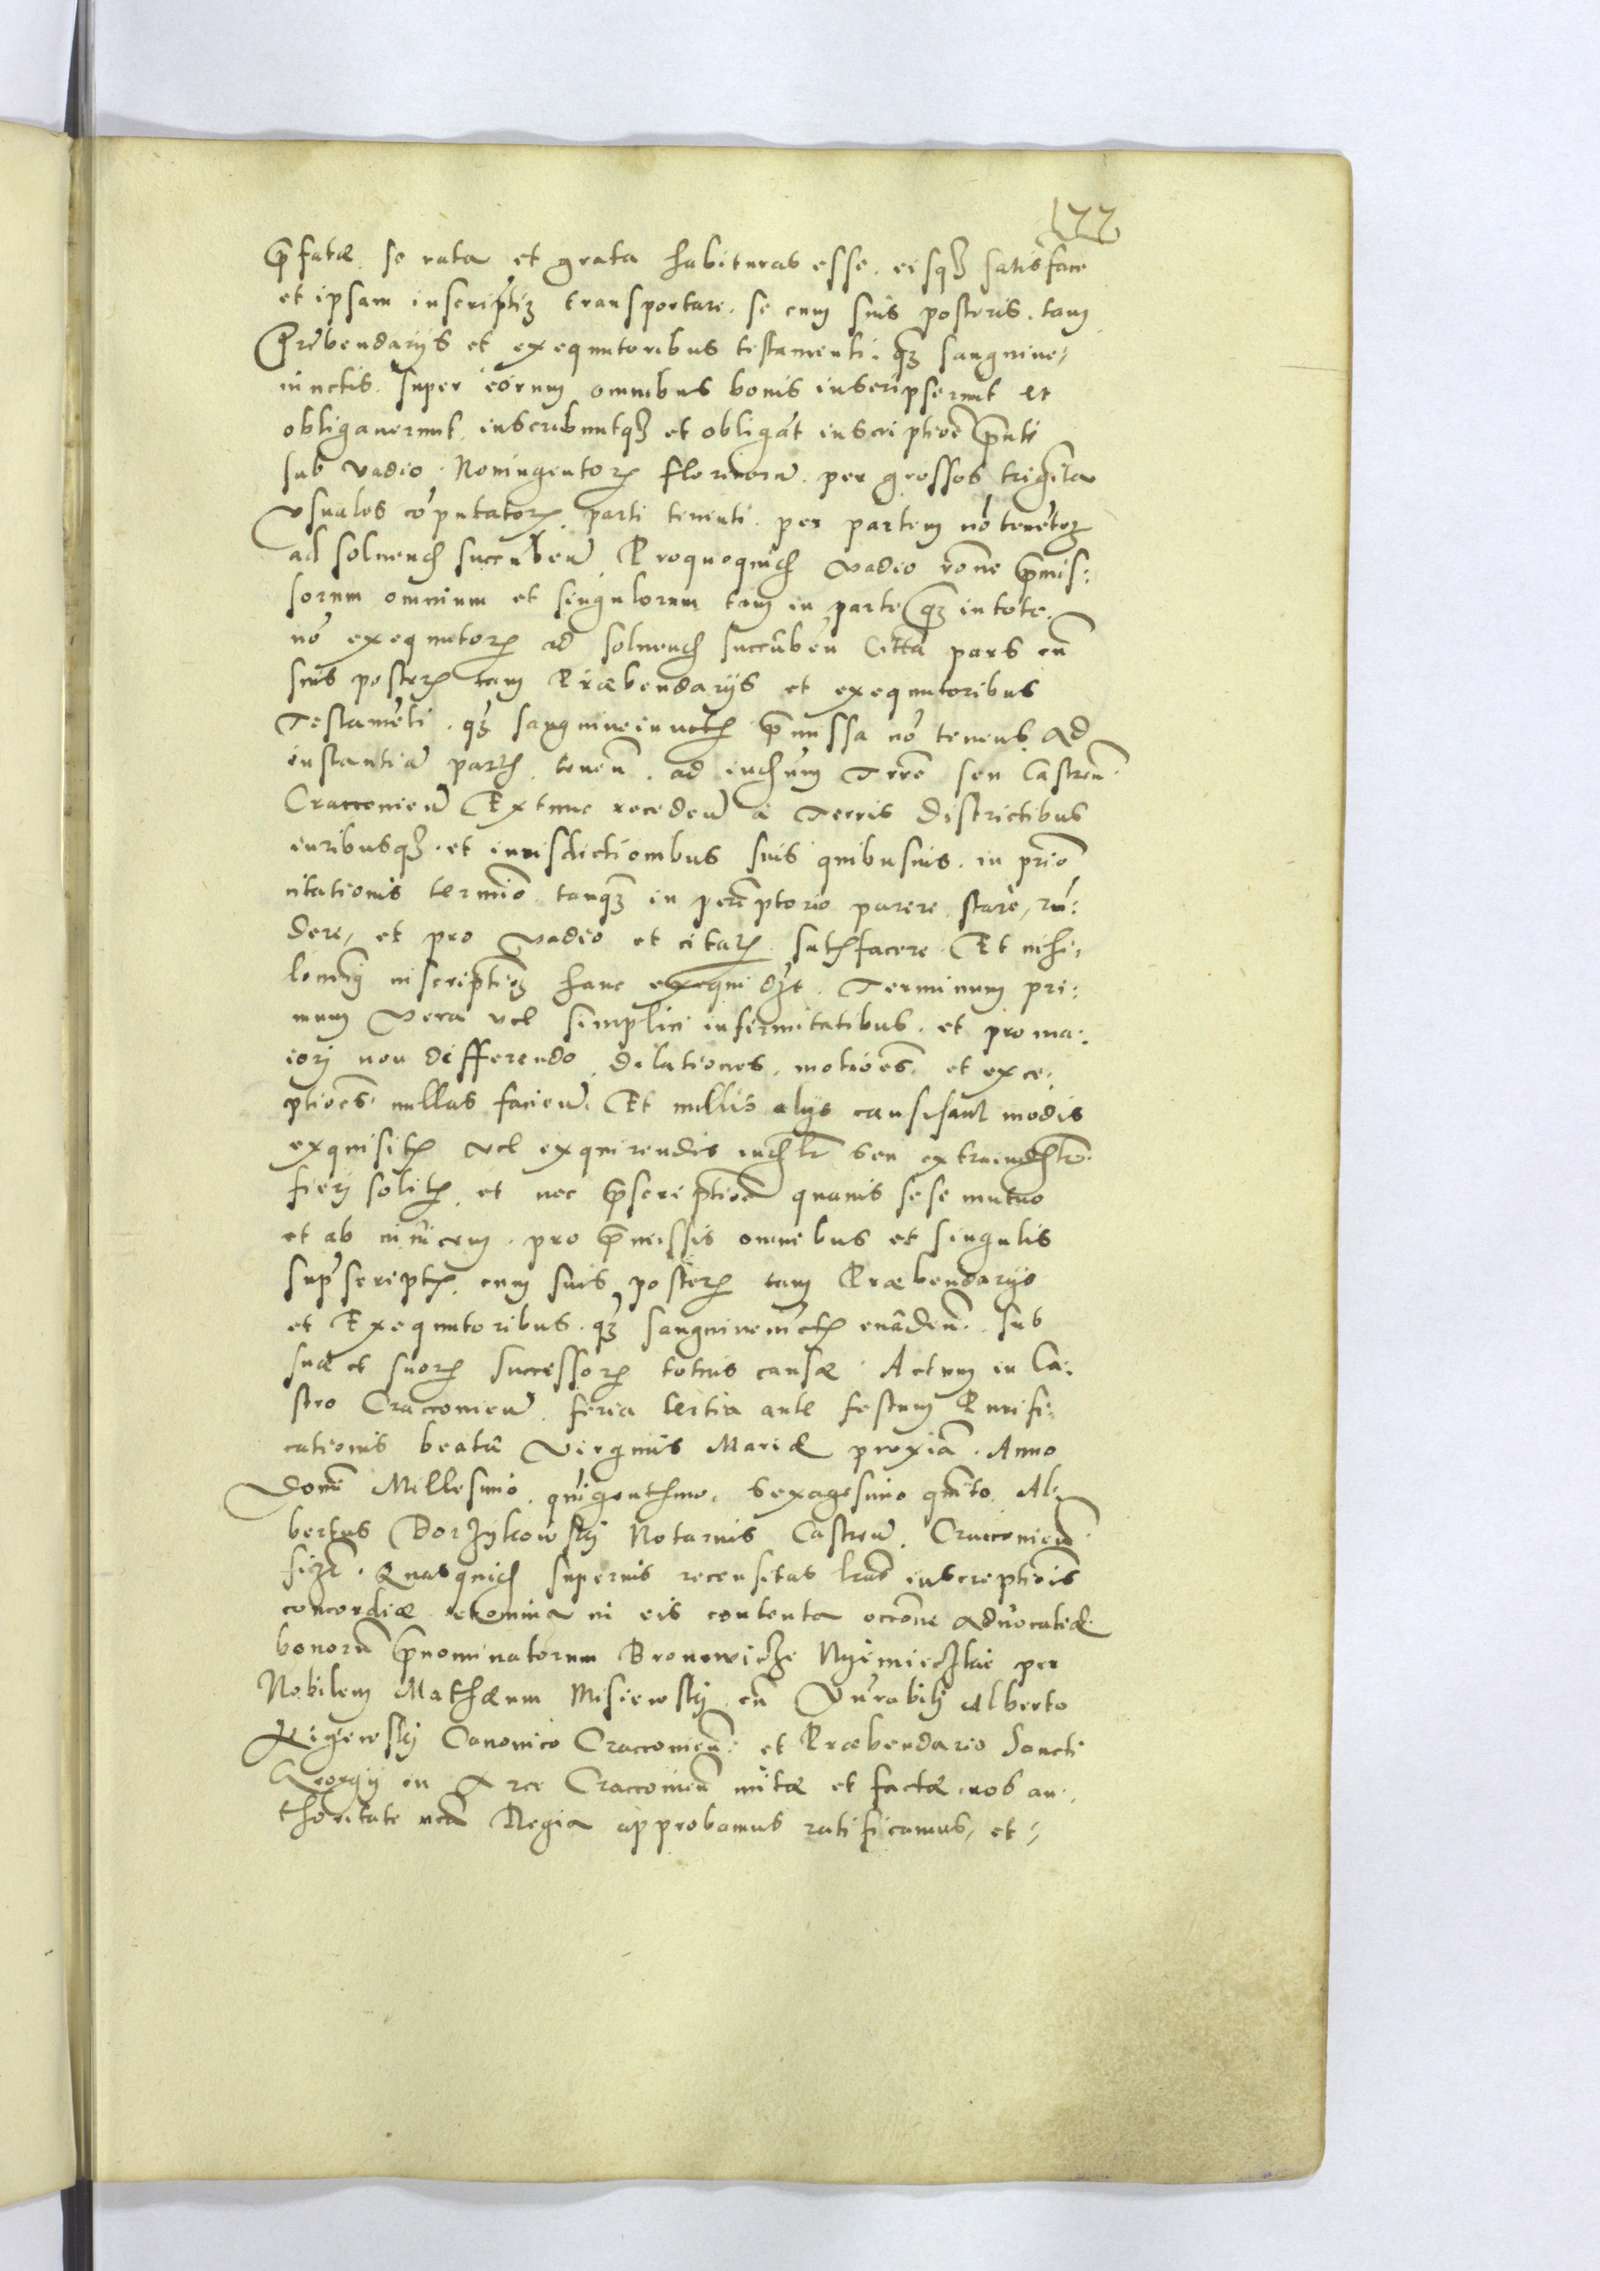 122
p̄fatæ se rata et grata habituras esse, eisqʒ satisface
et ipsam inscriptiōʒ transportare. se cum suis posteris, tam
Præbendarijs et exequutoribus testamenti. qʒ sanguine,
iunctis. super eorum omnibus bonis inscripserunt et
obligauerunt, inscribuntqʒ et obligāt inscriptioē p̄nti
sub vadio. Noningentorꝝ florenorū. per grossos triginta
vsuales cōputatorꝝ. parti tenenti. per partem nō tenētem
ad soluend succuben̄ Proquoquid vadio rōne p̄mis:
sorum omnium et singulorum tam in parte qʒ in toto.
nō exequutorꝝ ad soluend succūben̄ Citta pars cū
suis posterꝭ tam Præbendarijs et exequutoribus
Testamēti. qʒ sanguineiunctꝭ p̄missa nō tenens, Ad
instantiā partꝭ tenen̄. ad iudium Trrē seu Castren̄
Cracouien̄ Extunc receden̄ à Terris districtibus
iuribusqʒ. et iurisdictionibus suis quibusuis. in prīo
citationis termīo tanqʒ in perēptorio parere, stare, rn̄:
dere, et pro vadio et citatꝭ satꝭfacere. Et nihi,
lominꝰ inscriptiōʒ hanc exequi dʒt. Terminum pri:
mum vera vel simplici infirmitatibus. et pro ma:
iori non differendo, dilationes, motiōes. et exce,
ptiōes. nullas facien̄. Et nullis alijs causis aut modis
exquisitꝭ vel exquirendis iudlr seu extraiudlr.
fieri solitꝭ, et nec p̄scriptioē quauis sese mutuo
et ab inuicem. pro p̄missis omnibus et singulis
sup̄scriptꝭ. cum suis posterꝭ tam Præbendarijs
et Exequutoribus. qʒ sanguineiūctꝭ euāden̄. sub
suæ et suorꝝ successorꝝ totius causæ. Actum in Ca:
stro Cracouien̄. feria tertia ante festum Purifi,
cationis beatæ Virginis Mariæ proxīa. Anno
Dom̄ Millesimo, quīgentesimo, Sexagesimo quīto. Al,
bertus Borzykowskÿ Notarius Castren̄. Cracouien̄
sszt. Quasquid superius recensitas lrās inscriptiōis
concordiæ et omnia in eis contenta occōne aduocatiæ
bonorū p̄nominatorum Bronowicze Nyemieczkie per
Nobilem Mathæum Misiewskÿ cū Vn̄rabilj Alberto
Kÿewskÿ Canonico Cracouien̄. et Præbendario Sancti
Georgij in Arce Cracouien̄ initæ et factæ, nos au,
thoritate nrā Regia approbamus ratificamus, et,